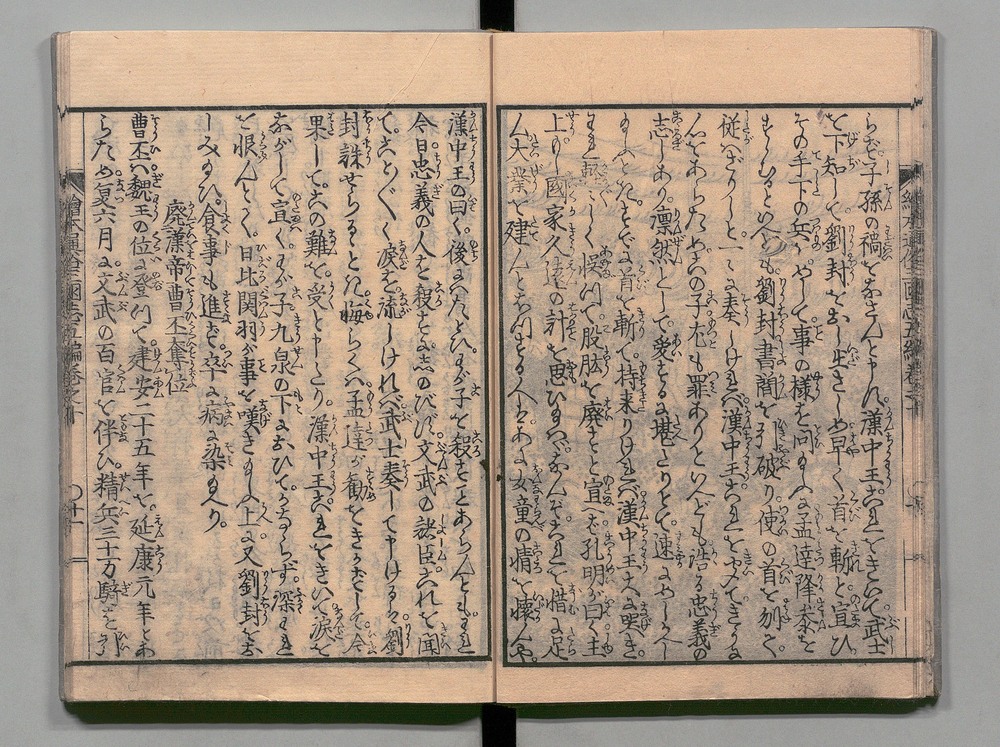 らず子孫の禍をなさんと申す。漢中王これをきいて武士
を下知して劉封を出し生さしめ早く首を斬と宣ひ
その手下の兵に。やして事の様を問給へば孟達降参を
すゝむるといへども。劉封書簡を引破り。使の首を刎て。
従ハざりしと一々に奏しければ漢中王これを聞てきう
心をあらためこの子尤も罪ありといへども。浩る忠義の
志しあり凛然として愛するに堪たりとて。速に
はや首を斬て持来りければ漢中王大に哭き
軽しく悞つて股肱を廃すと宣へば。孔明が曰く。主
上もし國家久遠の計を思ひ給ハゞ。なんぞこれを惜に足
ん大業を建んとする人なんぞ女童の情を懐んや。
漢中王の曰く。後にハたとひ。わが子を殺すとあらんとも。
今日忠義の人を殺すに忍のびず文武の諸臣。これを聞
て。ことごとく涙を流しければ武士奏して申けるハ劉
封誅せらるゝとき。悔らくハ孟達が勧をきかずして。今
果して。この難を。受くと申たり。漢中王これをきいて涙を
ながして宣く。わが子九泉の下に於ひて。かならず。深く
を恨んとて。日比関羽が事を嘆き給ふ上に又劉封を
しみ給ひ。食事も進まず。卒に病に染給へり。
廢漢帝曹丕奪位
曹丕ハ。魏王の位に登つて建安二十五年を。延康元年とあ
らため夏六月に文武の百官を伴ひ。精兵三十万騎を引
繪本通俗三國志五編巻之十
十一